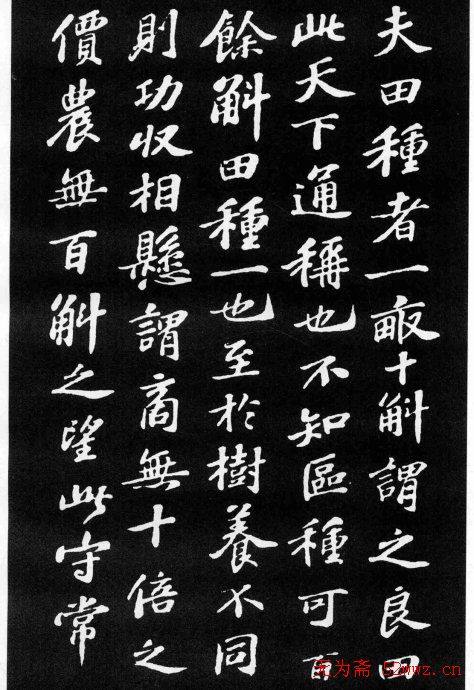 夫田種者一畝十斛謂之良田
此天下通稱也不知區種可百
餘斛田種一也至於樹養不同
則功收相懸謂商無十倍之
價農無百斛之望此守常
52wwz.cn